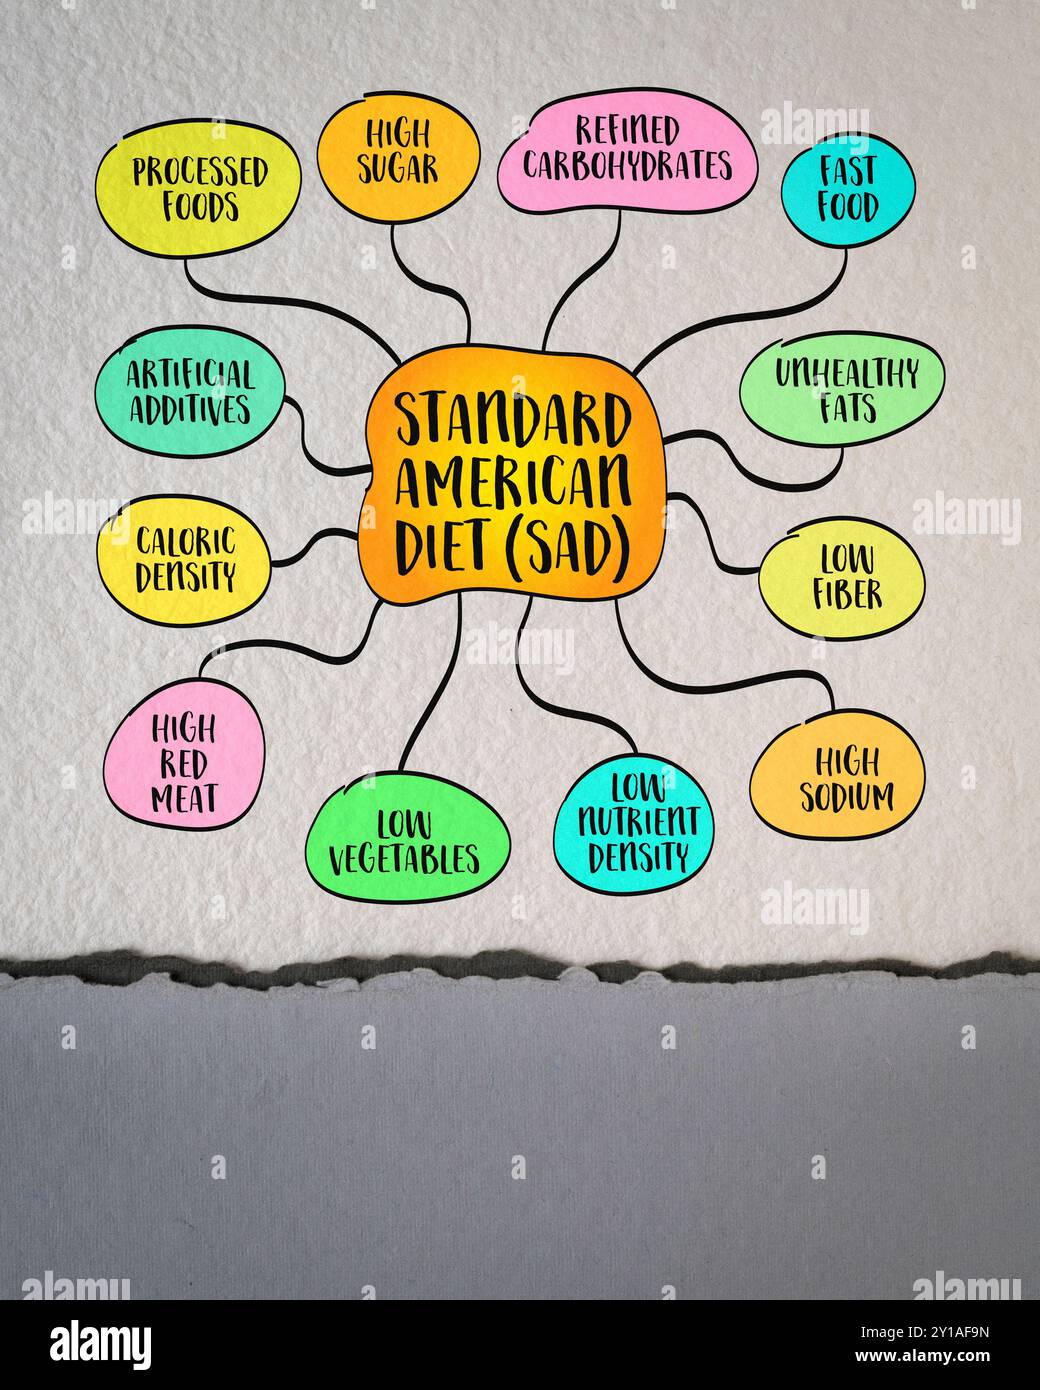 PROCESSED
FOODS
HIGH
SUGAR
REFINED
CARBOHYDRATES
FAST
FOOD
ARTIFICIAL
ADDITIVES
STANDARD
AMERICAN
DIET (SAD)
UNHEALTHY
FATS
CALORIC
DENSITY
LOW
FIBER
HIGH
RED
MEAT
LOW
VEGETABLES
LOW
NUTRIENT
DENSITY
HIGH
SODIUM
alamy
Image ID: Y1AF9N
www.alamy.com